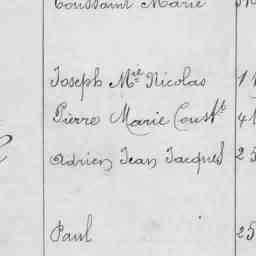 Toussaint Marie
Joseph Mie Nicolas 1
Pierre Marie Const 4
Adrien Jean Jacques 25
Paul 25